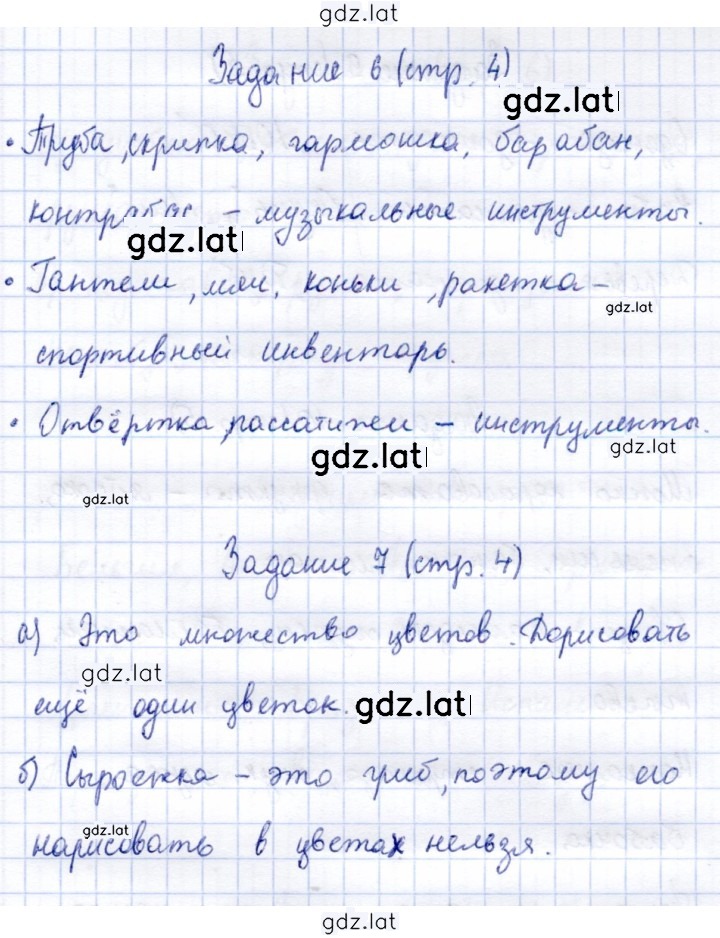 gdz.lat
Задание 6 (стр. 4)
gdz.lat
• Труба, скрипка, гармошка, барабан,
контрабас – музыкальные инструменты.
gdz.lat
• Гантели, мяч, коньки, ракетка –
gdz.lat
спортивный инвентарь.
• Отвёртка, пассатижи – инструменты.
gdz.lat
gdz.lat
gdz.lat
Задание 7 (стр. 4)
а) Это множество цветов. Дорисовать
gdz.lat
ещё один цветок.
gdz.lat
б) Сыроежка – это гриб, поэтому его
gdz.lat
нарисовать в цветах нельзя.
gdz.lat